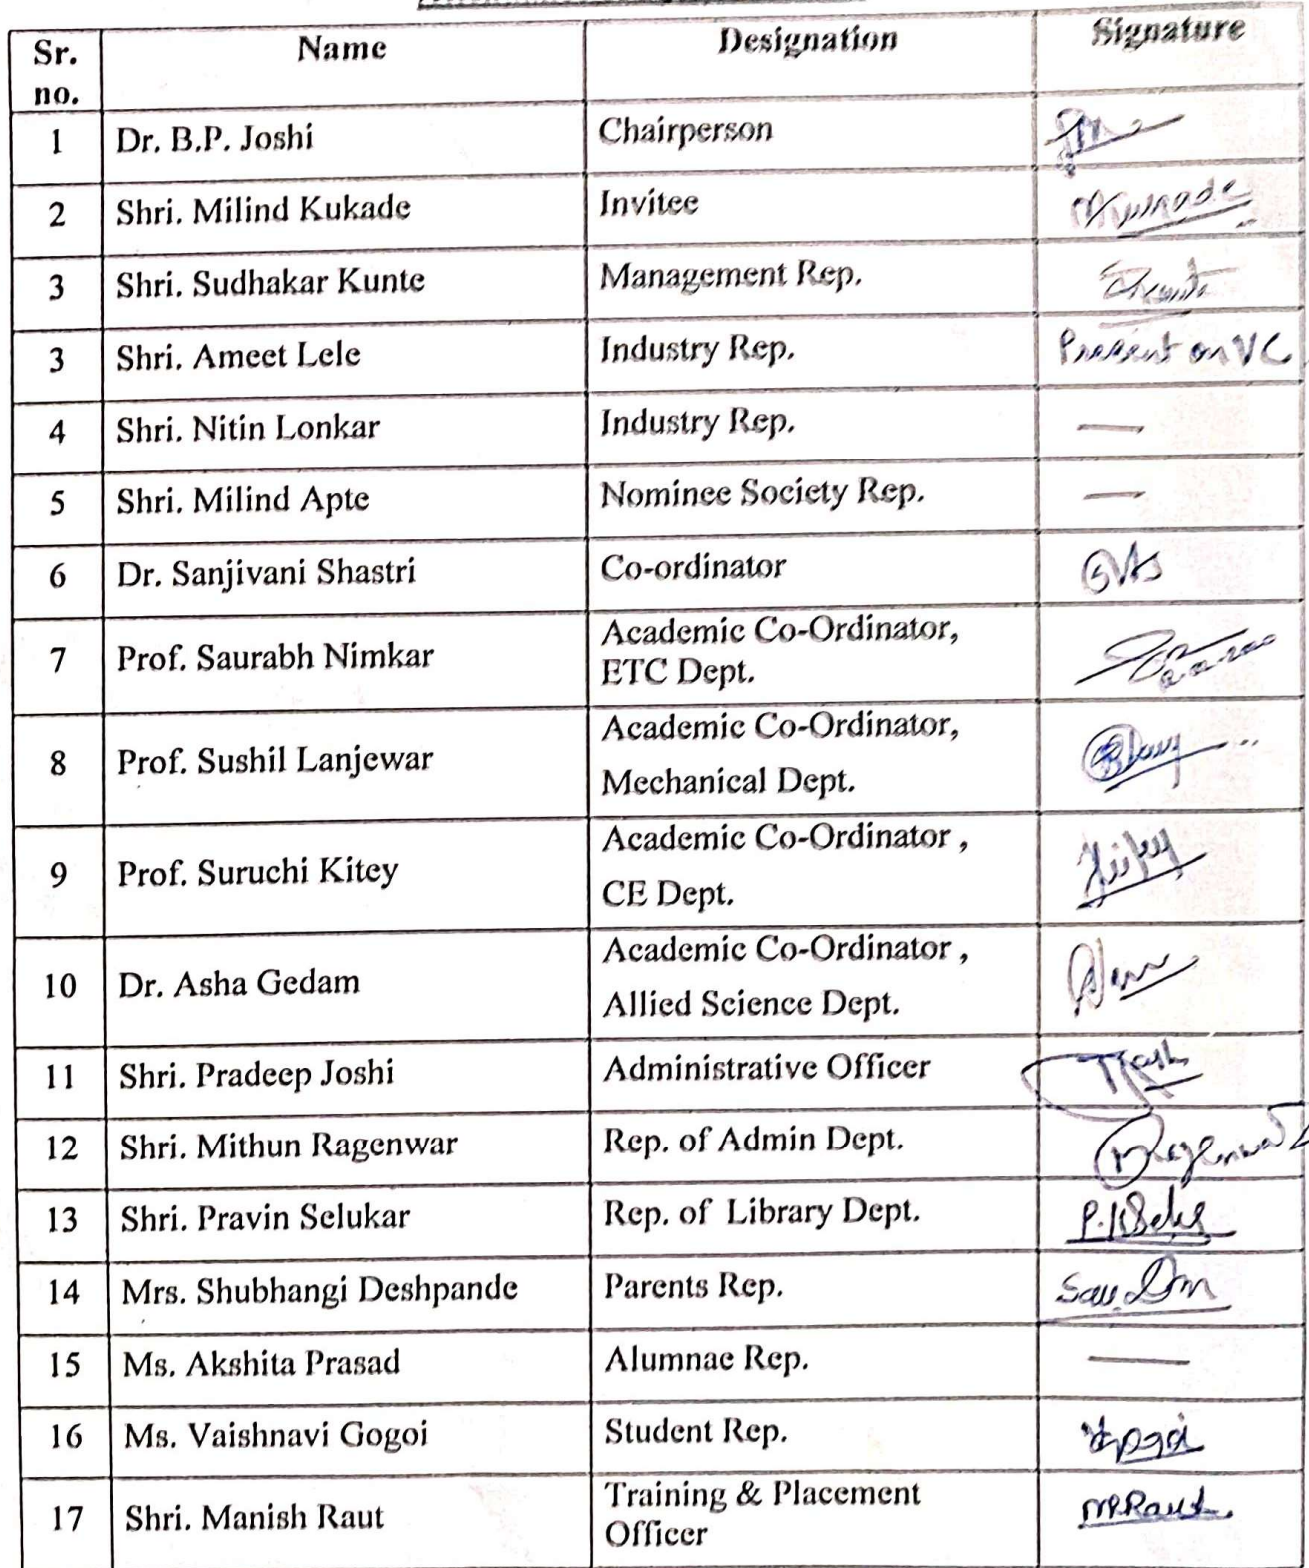 Sr. no. Name Designation Signature
1 Dr. B.P. Joshi Chairperson
2 Shri. Milind Kukade Invitee Mkukade
3 Shri. Sudhakar Kunte Management Rep.
3 Shri. Ameet Lele Industry Rep. Present on VC
4 Shri. Nitin Lonkar Industry Rep. —
5 Shri. Milind Apte Nominee Society Rep. —
6 Dr. Sanjivani Shastri Co-ordinator
7 Prof. Saurabh Nimkar Academic Co-Ordinator,
ETC Dept.
8 Prof. Sushil Lanjewar Academic Co-Ordinator,
Mechanical Dept.
9 Prof. Suruchi Kitey Academic Co-Ordinator ,
CE Dept.
10 Dr. Asha Gedam Academic Co-Ordinator ,
Allied Science Dept.
11 Shri. Pradeep Joshi Administrative Officer
12 Shri. Mithun Ragenwar Rep. of Admin Dept.
13 Shri. Pravin Selukar Rep. of Library Dept.
14 Mrs. Shubhangi Deshpande Parents Rep.
15 Ms. Akshita Prasad Alumnae Rep. —
16 Ms. Vaishnavi Gogoi Student Rep.
17 Shri. Manish Raut Training & Placement
Officer M.P.Raut.